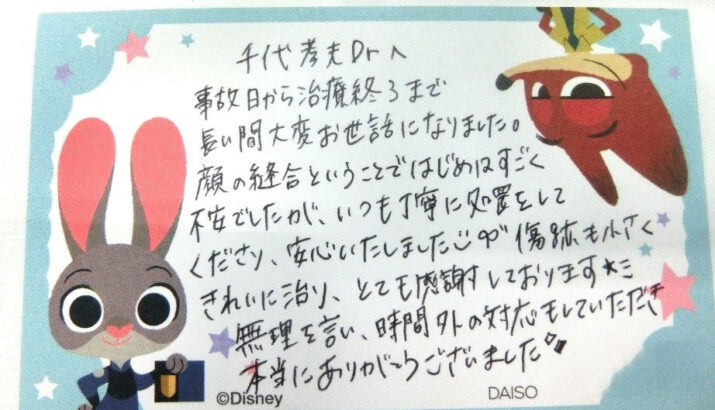 千代孝夫Drへ
事故日から治療終了まで
長い間大変お世話になりました。
顔の縫合ということではじめはすごく
不安でしたが、いつも丁寧に処置をして
くださり、安心いたしました 傷跡も小さく
きれいに治り、とても感謝しております
無理を言い、時間外の対応もしていただき
本当にありがとうございました
©Disney
DAISO